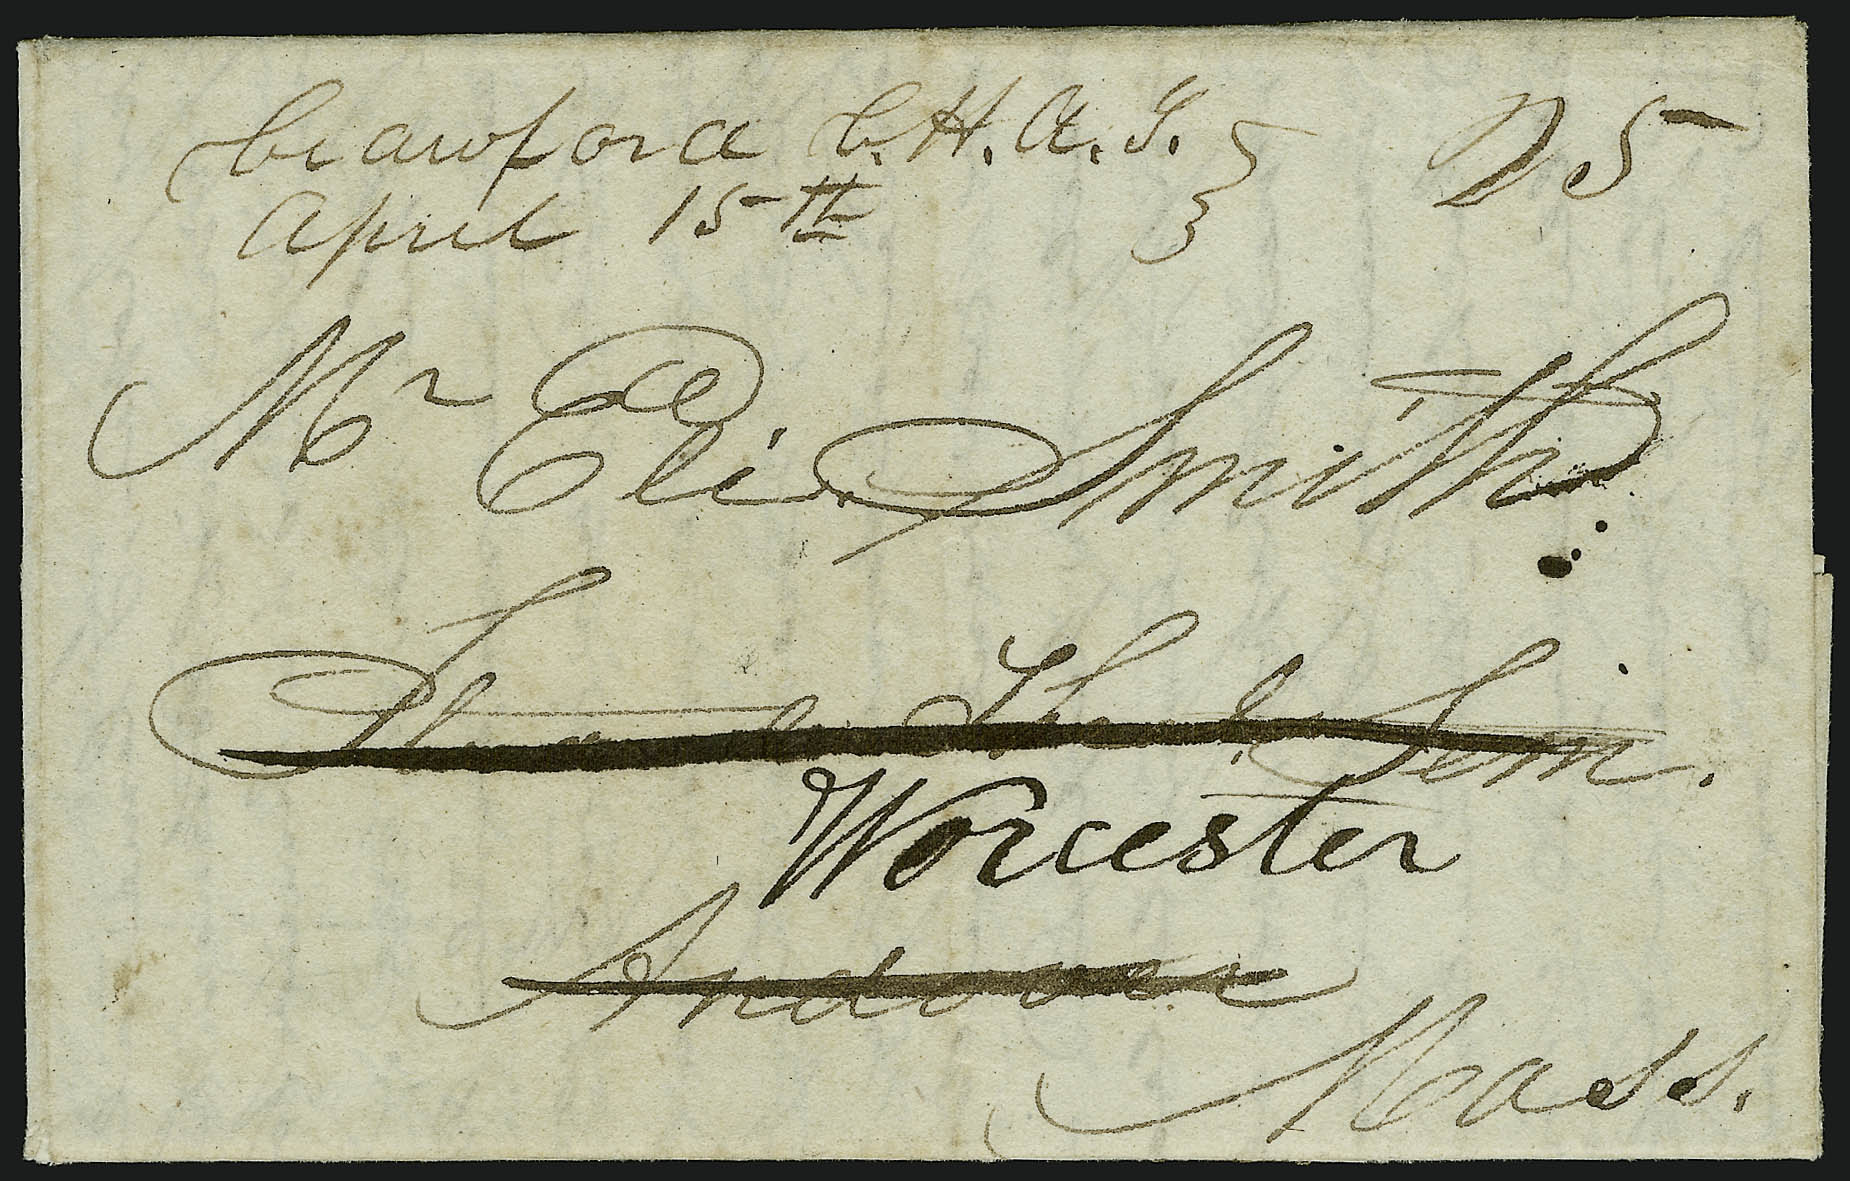 Crawford C.H. A.T. 25
April 15th
Mr Eli Smith
Theol. Sem.
Worcester
Andover
Mass.